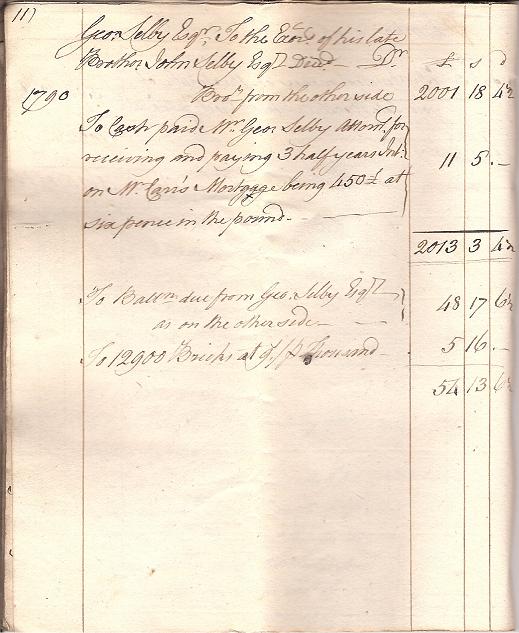 117
Geo: Selby Esqr. To the Exors. of his late
Brother John Selby Esqr. Decd. Dr.
£ s d
1790 Brot. from the other side 2001 18 4½
To Cash paid Mr. Geor Selby Attorn. for
receiving and paying 3 half years Int: 11 5 . -
on Mr. Carr's Mortgage being 450£ at
six pence in the pound -
2013 3 4½
To Ballce. due from Geo. Selby Esqr. 48 17 6½
as on the other side -
To 12900 Bricks at 9/ P Thousand 5 16 . -
54 13 6½